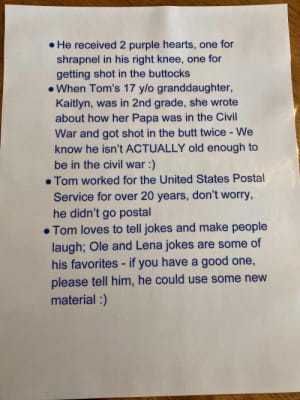 • He received 2 purple hearts, one for
shrapnel in his right knee, one for
getting shot in the buttocks
• When Tom's 17 y/o granddaughter,
Kaitlyn, was in 2nd grade, she wrote
about how her Papa was in the Civil
War and got shot in the butt twice - We
know he isn't ACTUALLY old enough to
be in the civil war :)
• Tom worked for the United States Postal
Service for over 20 years, don't worry,
he didn't go postal
• Tom loves to tell jokes and make people
laugh; Ole and Lena jokes are some of
his favorites - if you have a good one,
please tell him, he could use some new
material :)